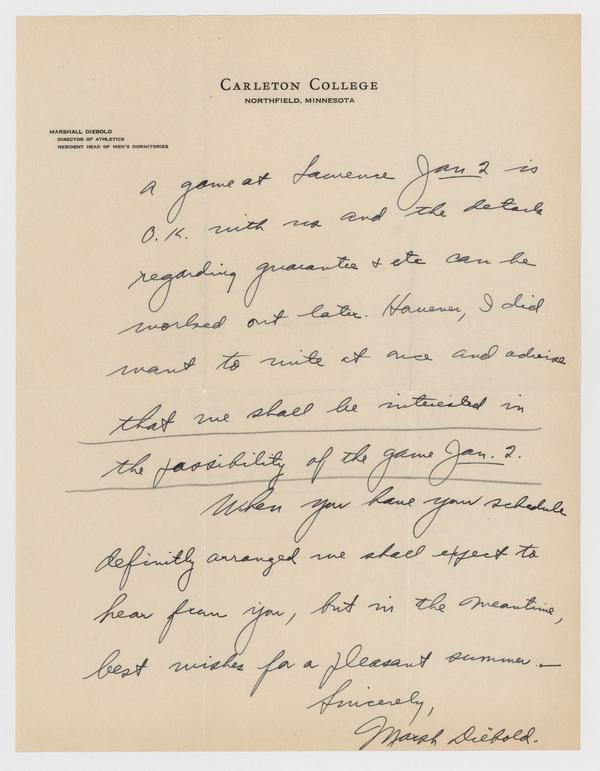 CARLETON COLLEGE
NORTHFIELD, MINNESOTA
MARSHALL DIEBOLD
DIRECTOR OF ATHLETICS
RESIDENT HEAD OF MEN'S DORMITORIES
A game at Lawrence Jan 2 is
O.K. with us and the details
regarding guarantee & etc can be
worked out later. However, I did
want to write at once and advise
that we shall be interested in
the possibility of the game Jan. 2.
When you have your schedule
definitly arranged we shall expect to
hear from you, but in the meantime,
best wishes for a pleasant summer.—
Sincerely,
Marsh Diebold.